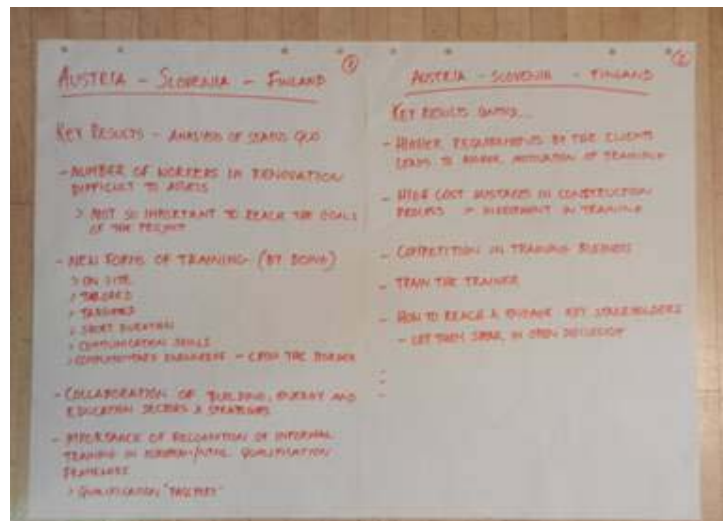 ①
AUSTRIA - SLOVENIA - FINLAND
KEY RESULTS - ANALYSIS OF STATUS QUO
- NUMBER OF WORKERS IN RENOVATION
DIFFICULT TO ASSESS
> NOT SO IMPORTANT TO REACH THE GOALS
OF THE PROJECT
- NEW FORMS OF TRAINING (BY DOING)
> ON SITE
> TAILORED
> TARGETED
> SHORT DURATION
> COMMUNICATION SKILLS
> KNOWLEDGE - OPEN THE BORDER
- COLLABORATION OF BUILDING, ENERGY AND
EDUCATION SECTORS & STRATEGIES
- IMPORTANCE OF RECOGNITION OF INFORMAL
TRAINING IN EUROPEAN/NTNL QUALIFICATION
> QUALIFICATION
②
AUSTRIA - SLOVENIA - FINLAND
KEY RESULTS
- HIGHER REQUIREMENTS BY THE CLIENTS
LEADS TO HIGHER MOTIVATION OF TRAINING
- HIGH COST MISTAKES IN CONSTRUCTION
PROCESS INVESTMENT IN TRAINING
- COMPETITION IN TRAINING BUSINESS
- TRAIN THE TRAINER
- HOW TO REACH & ENGAGE KEY STAKEHOLDERS
- LET THEM SPEAK IN OPEN DISCUSSION
-
-
-